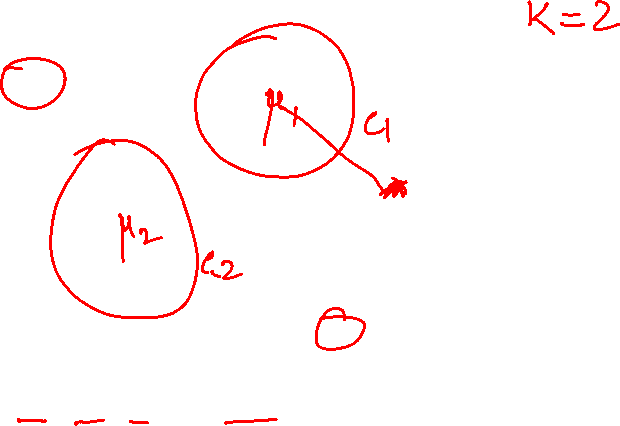 K=2
μ1
C1
μ2
C2